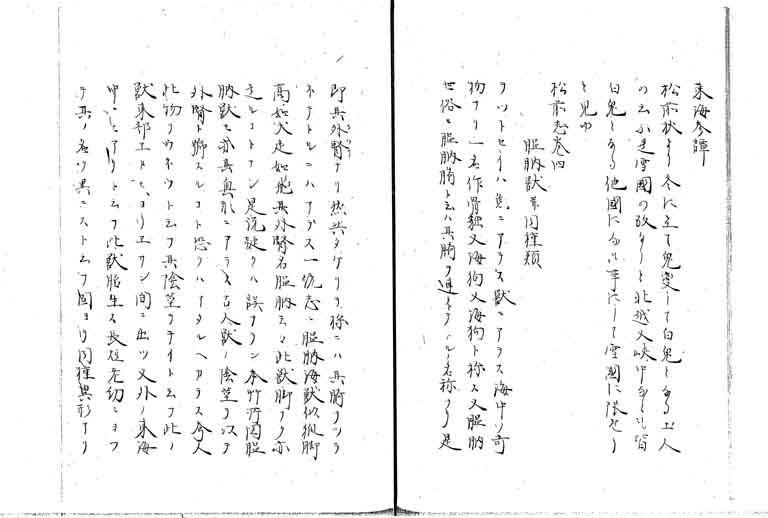 東海参譚
松前状ニ云冬に至て兎変して白兎となる土人
の云ふ是雪國の故なりと北越又峡中なとも皆
白兎となる他國になき事にして雪國に限せり
と見ゆ
松前志巻四
膃肭獣并同種類
ヲットセイハ魚ニアラス獣ニアラス海中ノ奇
物ナリ一名作骨貀又海狗又海狗ト称ス又膃肭
世俗ニ膃肭臍ト云ハ其臍ヲ連子テノ名称ナリ是
即其外腎ナリ然共タケリヲ称ニハ其臍ヲツラ
子テトルニハアラス一統志ニ膃肭海獣似狐脚
高如犬走如飛其外腎名膃肭云々此獣脚ナク亦
走ルコトナシ是説疑クハ誤ナラン本竹所図膃
肭獣モ亦其真形ニアラス古人獣ノ陰茎ヲ以テ
外腎ト號スルコト恐クハ当タルヘカラス今人
此物ヲウネウト云フ其陰茎ヲテイト云フ此ノ
獣東部エトモヨリエリシ間ニ出ツ又外ノ東海
中ニモアリト云フ此獣胎生ス長短老幼ニヨツ
テ其ノ名ヲ異ニスト云フ固ヨリ同種異形ナリ